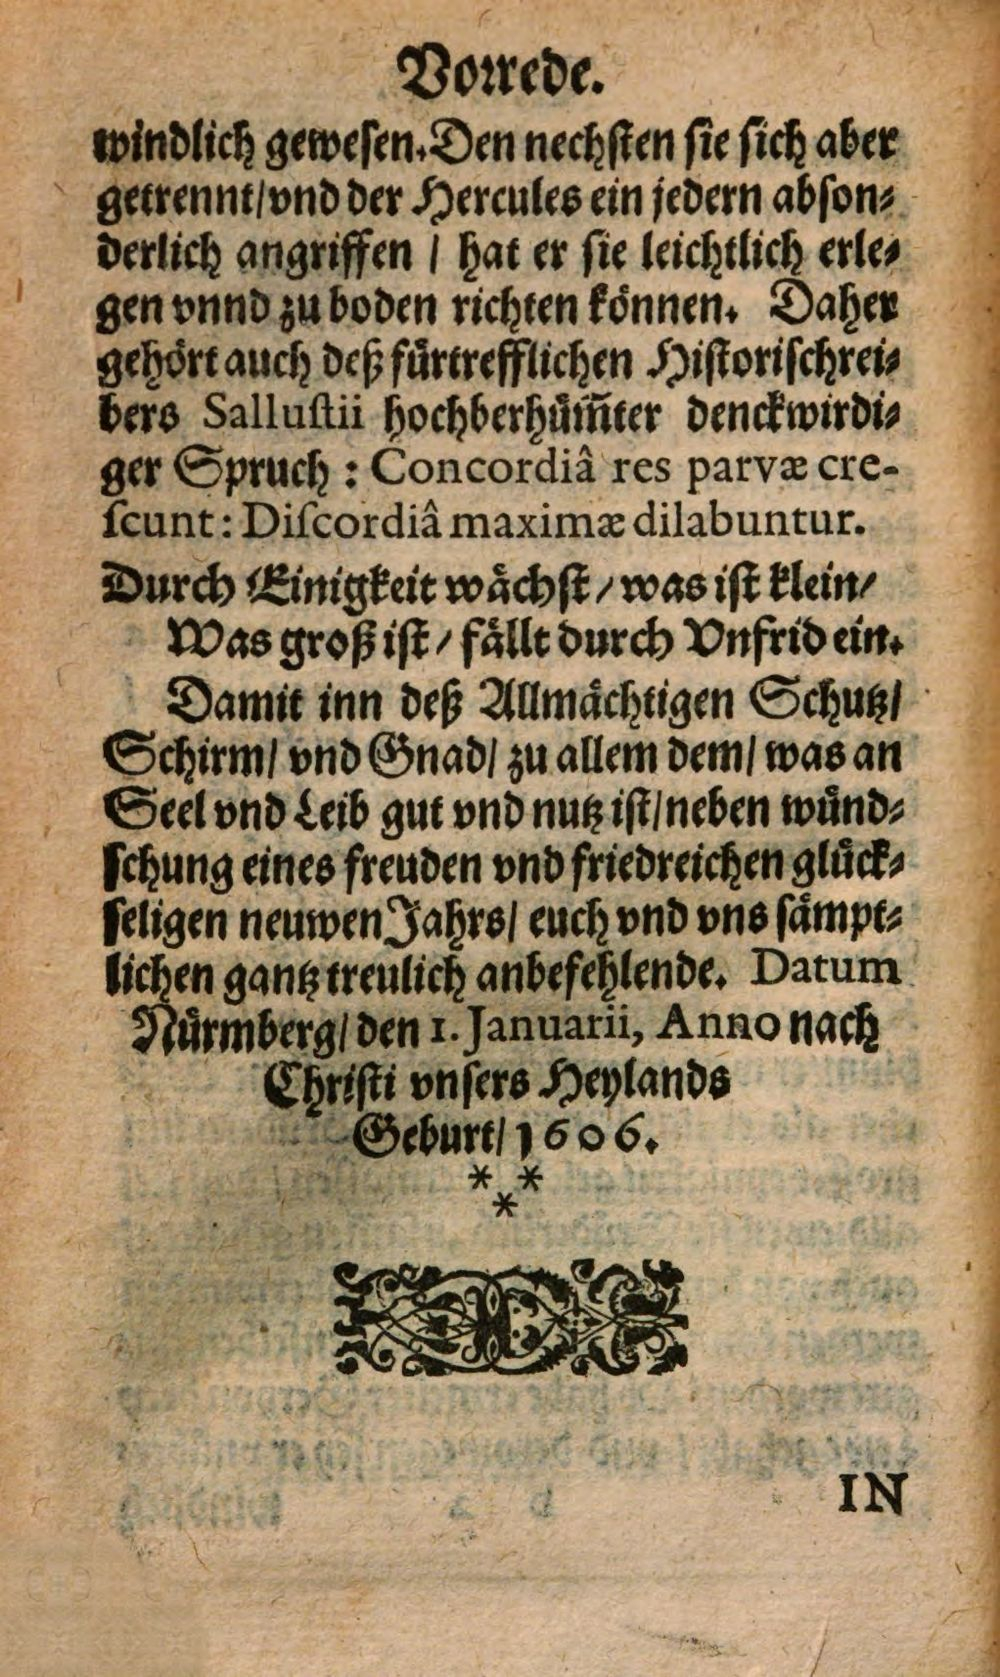 Vorrede.
windlich gewesen. Den nechsten sie sich aber
getrennt/ vnd der Hercules ein jedern abson⸗
derlich angriffen / hat er sie leichtlich erle⸗
gen vnnd zu boden richten koͤnnen. Daher
gehoͤrt auch deß fuͤrtrefflichen Historischrei⸗
bers Sallustii hochberhuͤm̃ter denckwirdi⸗
ger Spruch : Concordiâ res parvæ cre-
ſcunt: Diſcordiâ maximæ dilabuntur.
Durch Einigkeit waͤchst / was ist klein/
Was groß ist / faͤllt durch Vnfrid ein.
Damit inn deß Allmaͤchtigen Schutz/
Schirm/ vnd Gnad/ zu allem dem/ was an
Seel vnd Leib gut vnd nutz ist/ neben wuͤnd⸗
schung eines freuden vnd friedreichen gluͤck⸗
seligen neuwen Jahrs/ euch vnd vns saͤmpt⸗
lichen gantz treulich anbefehlende. Datum
Nuͤrmberg/ den 1. Januarii, Anno nach
Christi vnsers Heylands
Geburt/ 1606.
* *
*
IN